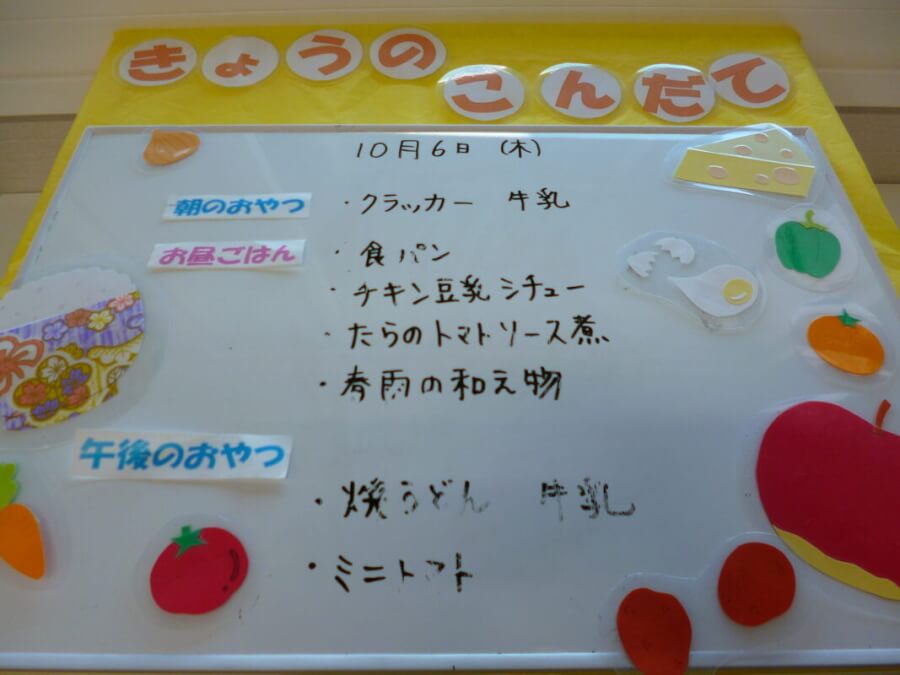 きょうの
こんだて
10月6日 (木)
朝のおやつ ・クラッカー 牛乳
お昼ごはん ・食パン
・チキン豆乳シチュー
・たらのトマトソース煮
・春雨の和え物
午後のおやつ
・焼うどん 牛乳
・ミニトマト